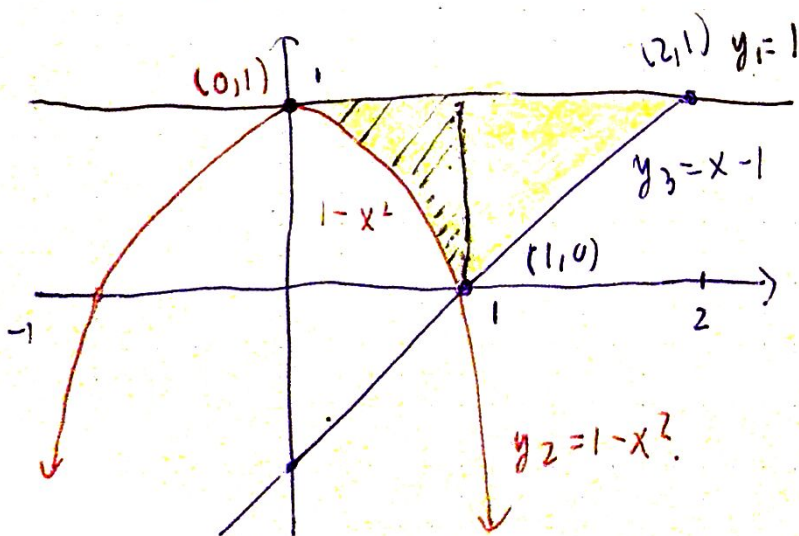 (2,1) y₁ = 1
(0,1) 1
y₃ = x - 1
1 - x²
(1,0)
-1 1 2
y₂ = 1 - x².